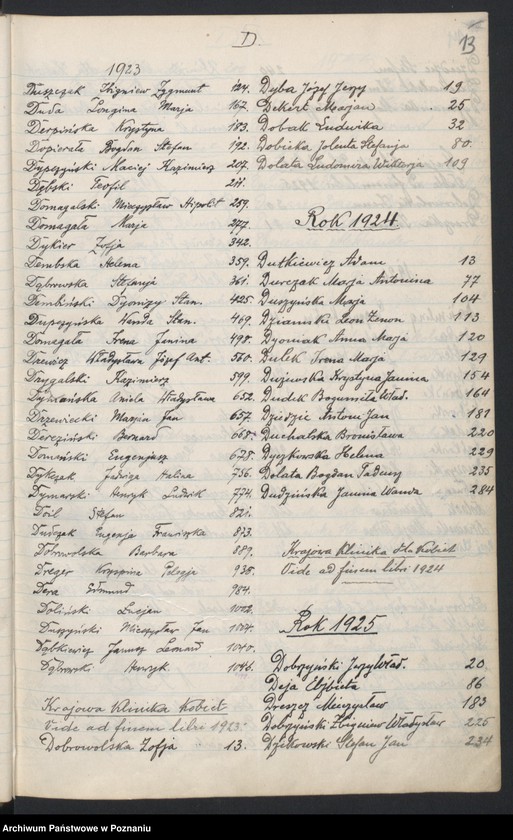 D.
13
1923
Tłuszczak Zbigniew Zygmunt 124.
Duda Longina Marja 167.
Derpińska Krystyna 183.
Dopierała Bogdan Stefan 192.
Dypczyński Maciej Kazimierz 207.
Dąbski Teofil 211.
Domagalski Mieczysław Hipolit 259.
Domagała Marja 277.
Dykier Zofja 342.
Dembska Helena 359.
Dąbrowska Stefanja 361.
Dembiński Dyonizy Stan. 425.
Wanda Stan. 469.
Domagała Irena Janina 498.
Drzewicz Władysława Józef Ant. 560.
Drzygalski Kazimierz 599.
Aniela Władysława 652.
Drzewiecki Marjan Jan 657.
Dereziński Bernard 668.
Domański Eugenjusz 678.
Dykczak Jadwiga Halina 756.
Dymarski Henryk Ludwik 774.
Doil Stefan 821.
Dudczak Eugenja Franciszka 873.
Dobrowolska Barbara 889.
Dreger Kryspina Pelagja 938.
Dera Edmund 984.
Doliński Lucjan 1002.
Duszyński Mieczysław Jan 1007.
Dąbkiewicz Janusz Leonard 1040.
Dąbrowski Henryk 1046.
Krajowa Klinika Kobiet
Vide ad finem libri 1923.
Dobrowolska Zofja 13.
Dyba Józef Jerzy 19
Dekert Marjan 25
Dobak Ludwika 32
Dobicka Jolenta Stefanja 80.
Dolata Ludomira Wiktorja 109
Rok 1924.
Dutkiewicz Adam 13
Durczak Marja Antonina 77
Duszyńska Marja 104
Dziamski Leon Zenon 113
Dyoniak Anna Marja 120
Dulek Irena Marja 129
Dujewska Krystyna Janina 154
Dudek Bogumiła Wład. 164
Dździoch Antoni Jan 181
Duchalska Bronisława 220
Dyczkowska Helena 229
Dolata Bogdan Tadeusz 235
Dudzińska Janina Wanda 284
Krajowa Klinika dla Kobiet
Vide ad finem libri 1924
Rok 1925
Dobrzyński Jerzy Wład. 20
Deja Elżbieta 86
Dreszcz Mieczysław 183
Dobrzyński Zbigniew Władysław 225
Dzitkowski Stefan Jan 234
Archiwum Państwowe w Poznaniu